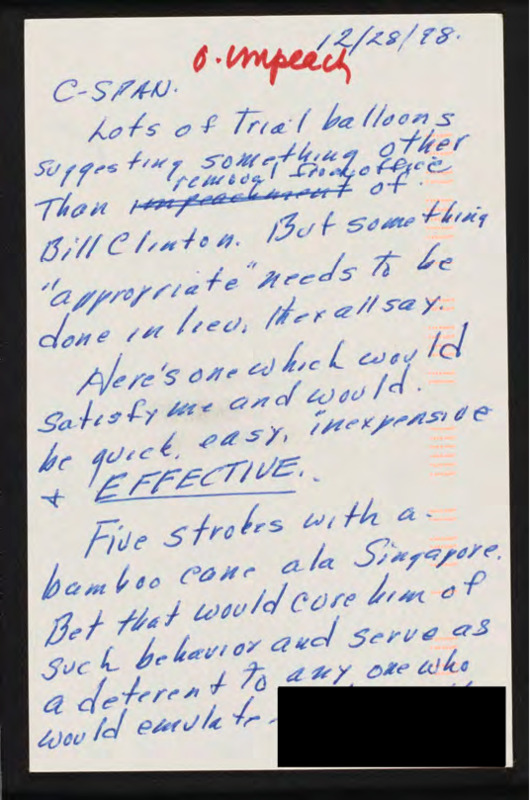 12/28/98.
o. impeach
C-SPAN.
Lots of Trial balloons
suggesting something other
removal from office
Than impeachment of
Bill Clinton. But something
"appropriate" needs to be
done in lieu, they all say.
Here's one which would
satisfy me and would
be quick, easy, inexpensive
+ EFFECTIVE.
Five strokes with a
bamboo cane ala Singapore.
Bet that would cure him of
such behavior and serve as
a deterent to any one who
would emulate